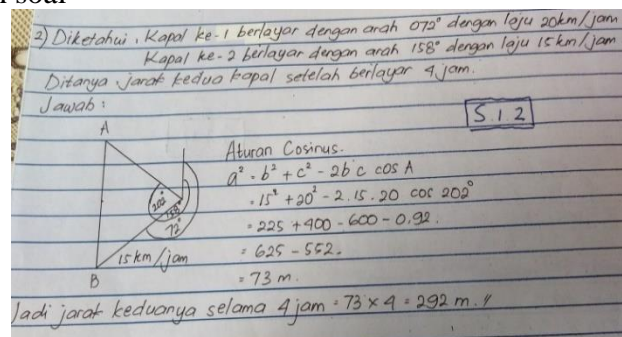 n soal
2) Diketahui, Kapal ke-1 berlayar dengan arah 072° dengan laju 20km/jam
Kapal ke-2 berlayar dengan arah 158° dengan laju 15 km/jam
Ditanya jarak kedua kapal setelah berlayar 4 jam.
Jawab :
S.1.2
A
Aturan Cosinus.
a² = b² + c² - 2b c cos A
= 15² + 20² - 2. 15. 20 cos 202°
202°
158°
= 225 + 400 - 600 - 0,92.
72°
= 625 - 552.
15 km/jam
= 73 m.
B
Jadi jarak keduanya selama 4 jam = 73 x 4 = 292 m. //